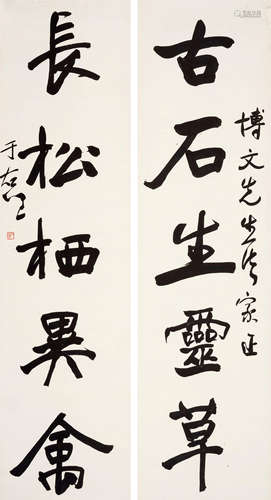 博文先生法家正
古石生靈草
長松栖異禽
于右任